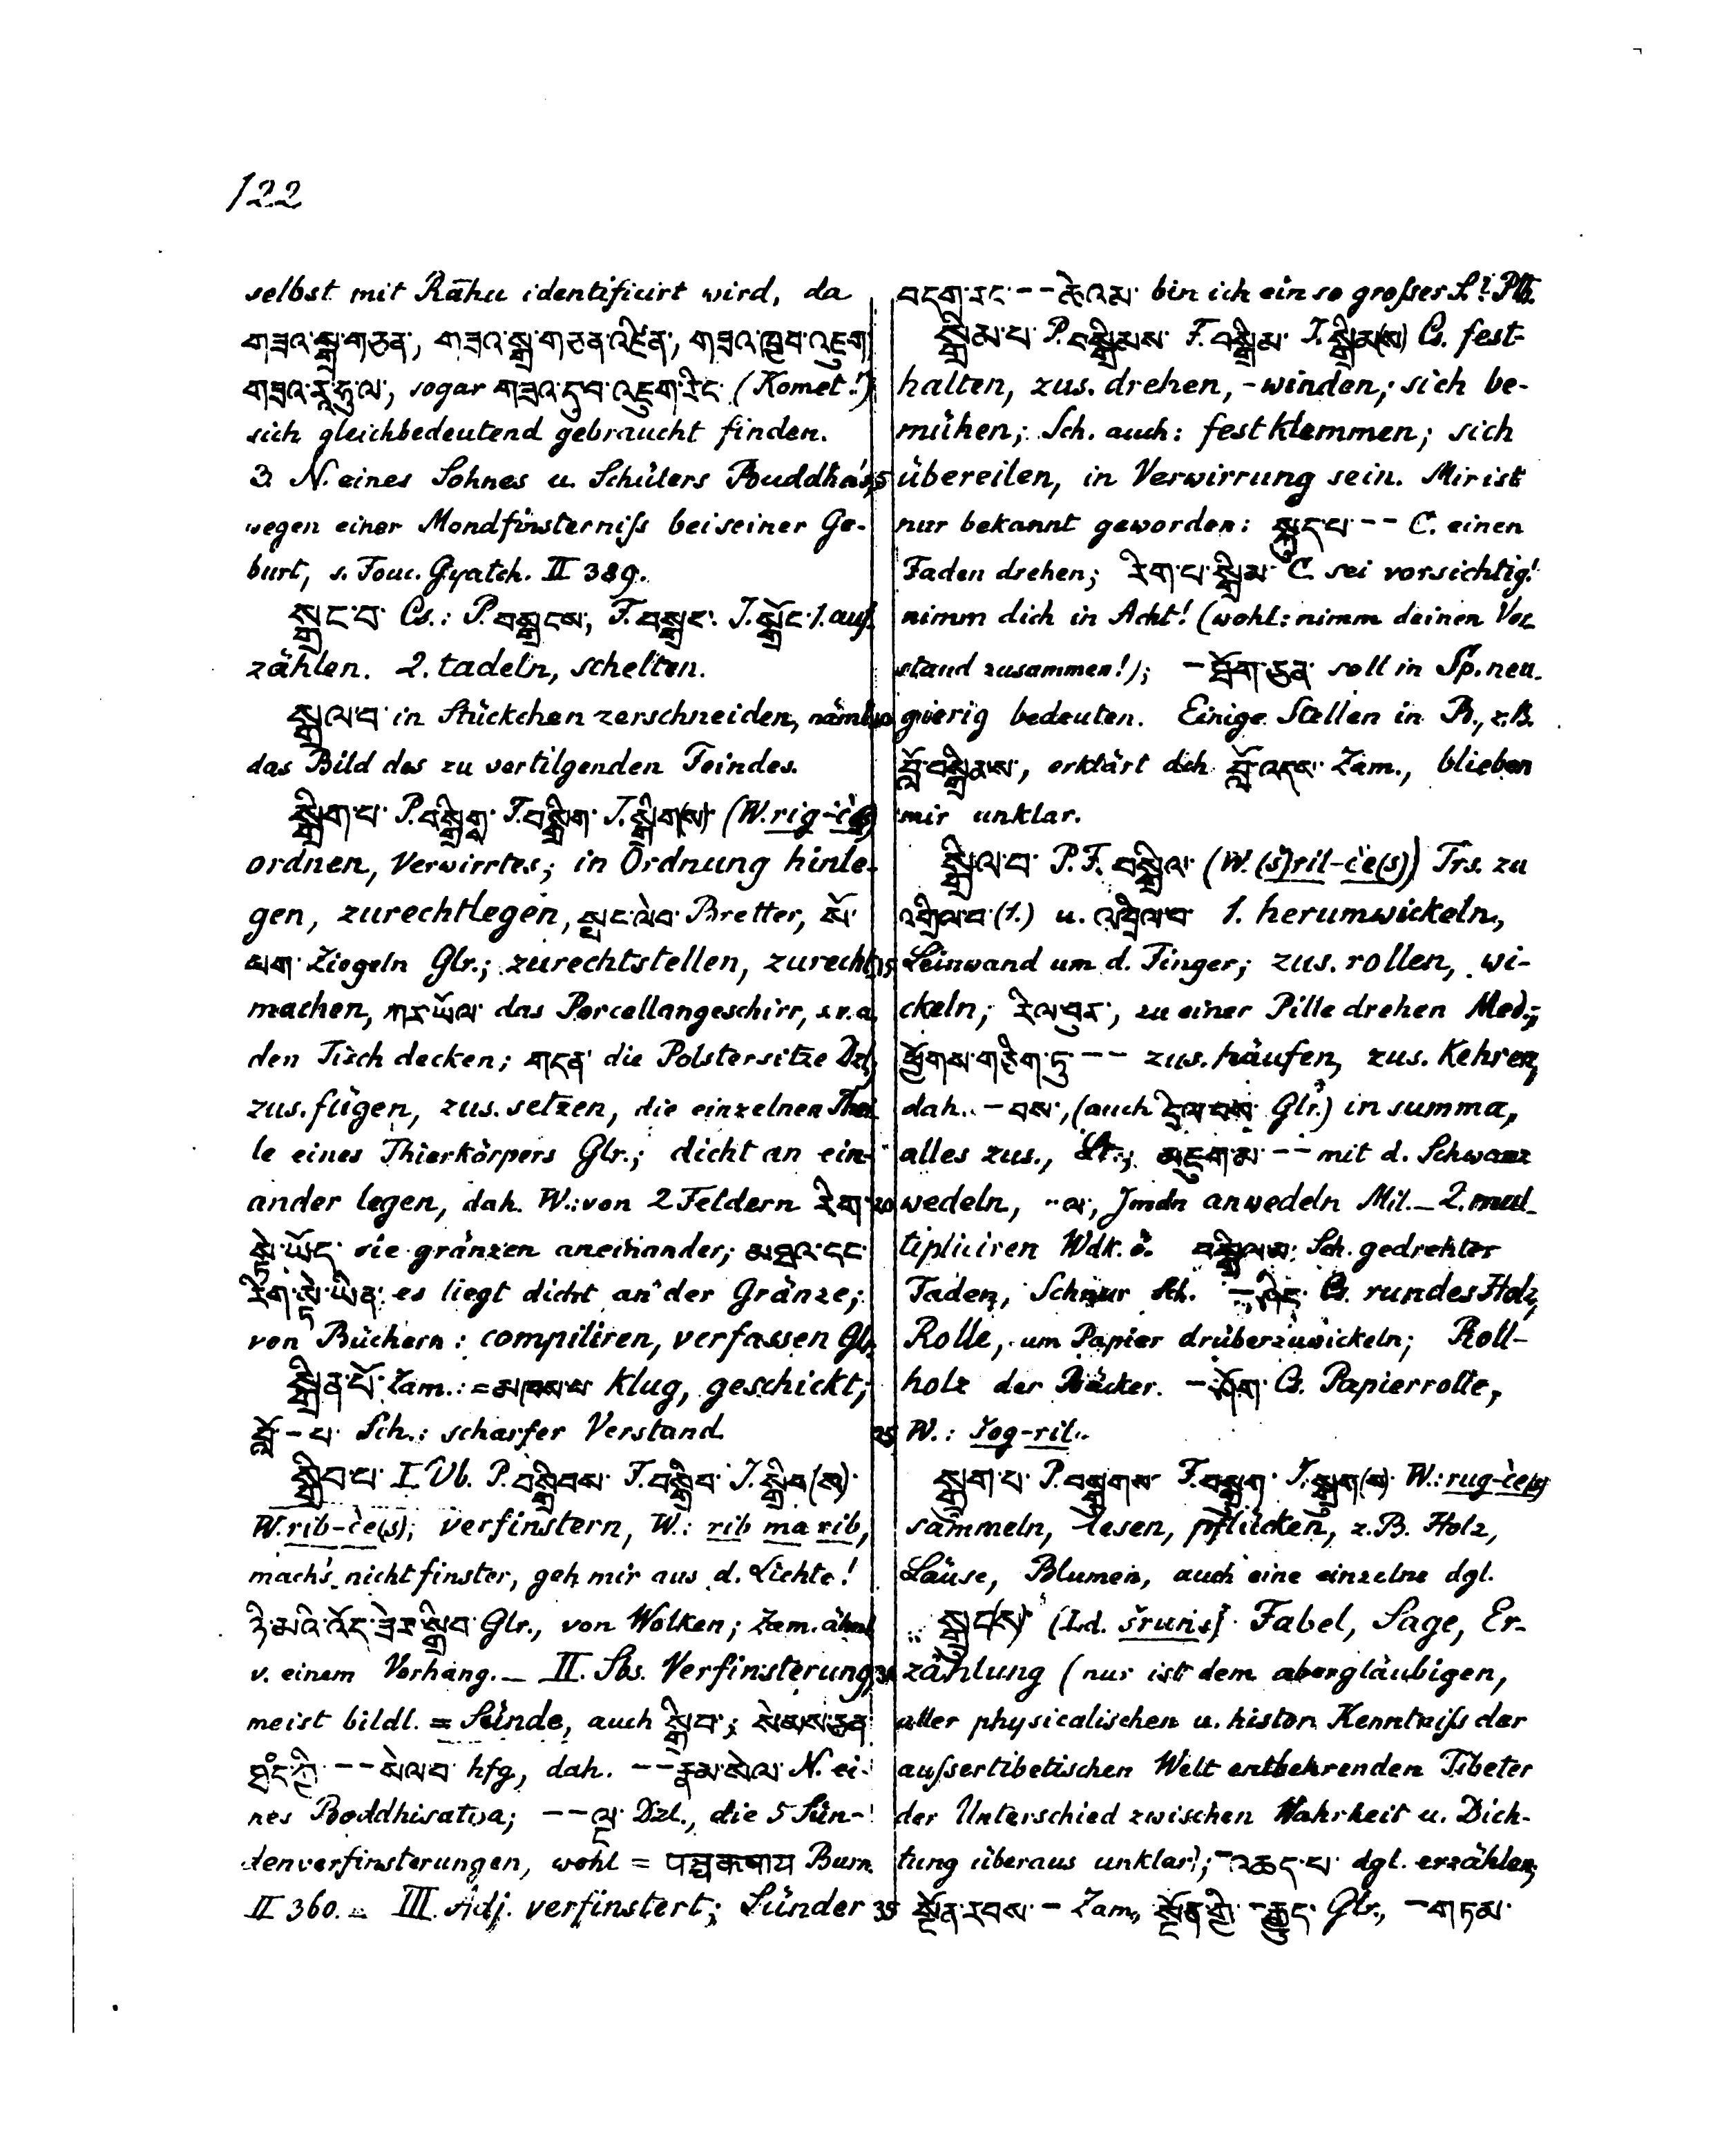 122
selbst mit Rāhu identificirt wird, da
གཟའ་སྒྲ་གཅན་, གཟའ་སྒྲ་གཅན་འཛིན་, གཟའ་ཁྱབ་འཇུག་
གཟའ་རཱ་ཧུ་ལ་, sogar གཟའ་དུབ་འཇུག་རིང་ (Komet!)
sich gleichbedeutend gebraucht finden.
3. N. eines Sohnes u. Schülers Buddha's,
wegen einer Mondfinsterniß bei seiner Ge-
burt, s. Fouc. Gyatch. II 389.
སྒྲང་བ་ Cs.: P. བསྒྲངས་, F. བསྒྲང་ I. སྒྲོང་ 1. auf-
zählen. 2. tadeln, schelten.
སྒྲལ་བ་ in Stückchen zerschneiden, näml.
das Bild des zu vertilgenden Feindes.
སྒྲིག་པ་ P. བསྒྲིག་ F. བསྒྲིག་ I. སྒྲིག(ས)་ (W. rig-
ordnen, Verwirrtes; in Ordnung hinle-
gen, zurechtlegen, སྤང་ལེབ་ Bretter, སོ་
ཕག་ Ziegeln Glr.; zurechtstellen, zurecht
machen, ཀར་ཡོལ་ das Porcellangeschirr, s.v.a.
den Tisch decken; གདན་ die Polstersitze Dzl,
zus. fügen, zus. setzen, die einzelnen Thei
le eines Thierkörpers Glr.; dicht an ein-
ander legen, dah. W.: von 2 Feldern རིག་
སྟེ་ཡོད་ sie gränzen aneinander; མཐའ་དང་
རིག་སྟེ་ཡིན་ es liegt dicht an der Gränze;
von Büchern: compiliren, verfassen Glr.
སྒྲིན་པོ་ Zam.: = མཁས་པ་ klug, geschickt;
བློ་ - པ་ Sch.: scharfer Verstand
སྒྲིབ་པ་ I. Vb. P. བསྒྲིབས་ F. བསྒྲིབ་ I. སྒྲིབ(ས)་
W. rib-c̀e(s); verfinstern, W.: rib ma rib,
mach's nicht finster, geh mir aus d. Lichte!
ཉི་མའི་འོད་ཟེར་སྒྲིབ་ Glr., von Wolken; Zam. ähnl
v. einem Vorhang. – II. Sbs. Verfinsterung,
meist bildl. = Sünde, auch སྒྲིབ་; སེམས་ཅན་
ཐུང་གི་ -- སེལ་བ་ hfg, dah. -- རྣམ་སེལ་ N. ei-
nes Boddhisatva; -- ལྔ་ Dzl., die 5 Sün-
denverfinsterungen, wohl = पञ्चकषाय Burn.
II 360. – III. Adj. verfinstert; Sünder
བདག་རང་ -- ཆེ་འམ་ bin ich ein so großer S.? Pth.
སྒྲིམ་པ་ P. བསྒྲིམས་ F. བསྒྲིམ་ I. སྒྲིམ(ས) Cs. fest-
halten, zus. drehen, -winden; sich be-
mühen; Sch. auch: festklemmen; sich
5 übereilen, in Verwirrung sein. Mir ist
nur bekannt geworden: སྐུད་པ་ -- C. einen
Faden drehen; རིག་པ་སྒྲིམ་ C. sei vorsichtig!
nimm dich in Acht! (wohl: nimm deinen Ver-
stand zusammen!); – ཐོག་ཅན་ soll in Sp. neu-
10 gierig bedeuten. Einige Stellen in B., z.B.
བློ་བསྒྲིམས་, erklärt dch བློ་འདས་ Zam., blieben
mir unklar.
སྒྲིལ་བ་ P.F. བསྒྲིལ་ (W. (s̀)ril-c̀e(s)) Trs. zu
འགྲིལ་བ་ (1.) u. འཁྲིལ་བ་ 1. herumwickeln,
15 Leinwand um d. Finger; zus. rollen, wi-
ckeln; རིལ་བུར་, zu einer Pille drehen Med.;
ཕྱོགས་གཅིག་ཏུ་ -- zus. häufen, zus. kehren,
dah. – བས་, (auch དྲིལ་བས་ Glr.) in summa,
alles zus., མཇུག་མ་ -- mit d. Schwanz
20 wedeln, -- ལ་, Jmdn anwedeln Mil. – 2. mul-
tipliciren Wdk. བསྒྲིལ་མ་ Sch. gedrehter
Faden, Schnur Sch. – ཤིང་ Cs. rundes Holz,
Rolle, um Papier drüberzuwickeln; Roll-
holz der Bäcker. – ཤོག་ Cs. Papierrolle,
25 W.: s̀og-ril.
སྒྲུག་པ་ P. བསྒྲུགས་ F. བསྒྲུག་ I. སྒྲུག(ས)་ W.: rug-c̀e(s)
sammeln, lesen, pflücken, z.B. Holz,
Läuse, Blumen, auch eine einzelne dgl.
སྒྲུང(ས)་ (Ld. s̀ruṅs) Fabel, Sage, Er-
30 zählung (nur ist dem abergläubigen,
aller physicalischen u. histor. Kenntniß der
außertibetischen Welt entbehrenden Tibeter
der Unterschied zwischen Wahrheit u. Dich-
tung überaus unklar); – འཆད་པ་ dgl. erzählen,
35 སྔོན་རབས་ – Zam., སྔོན་གྱི་ – རྒྱུད་ Glr., – གཏམ་